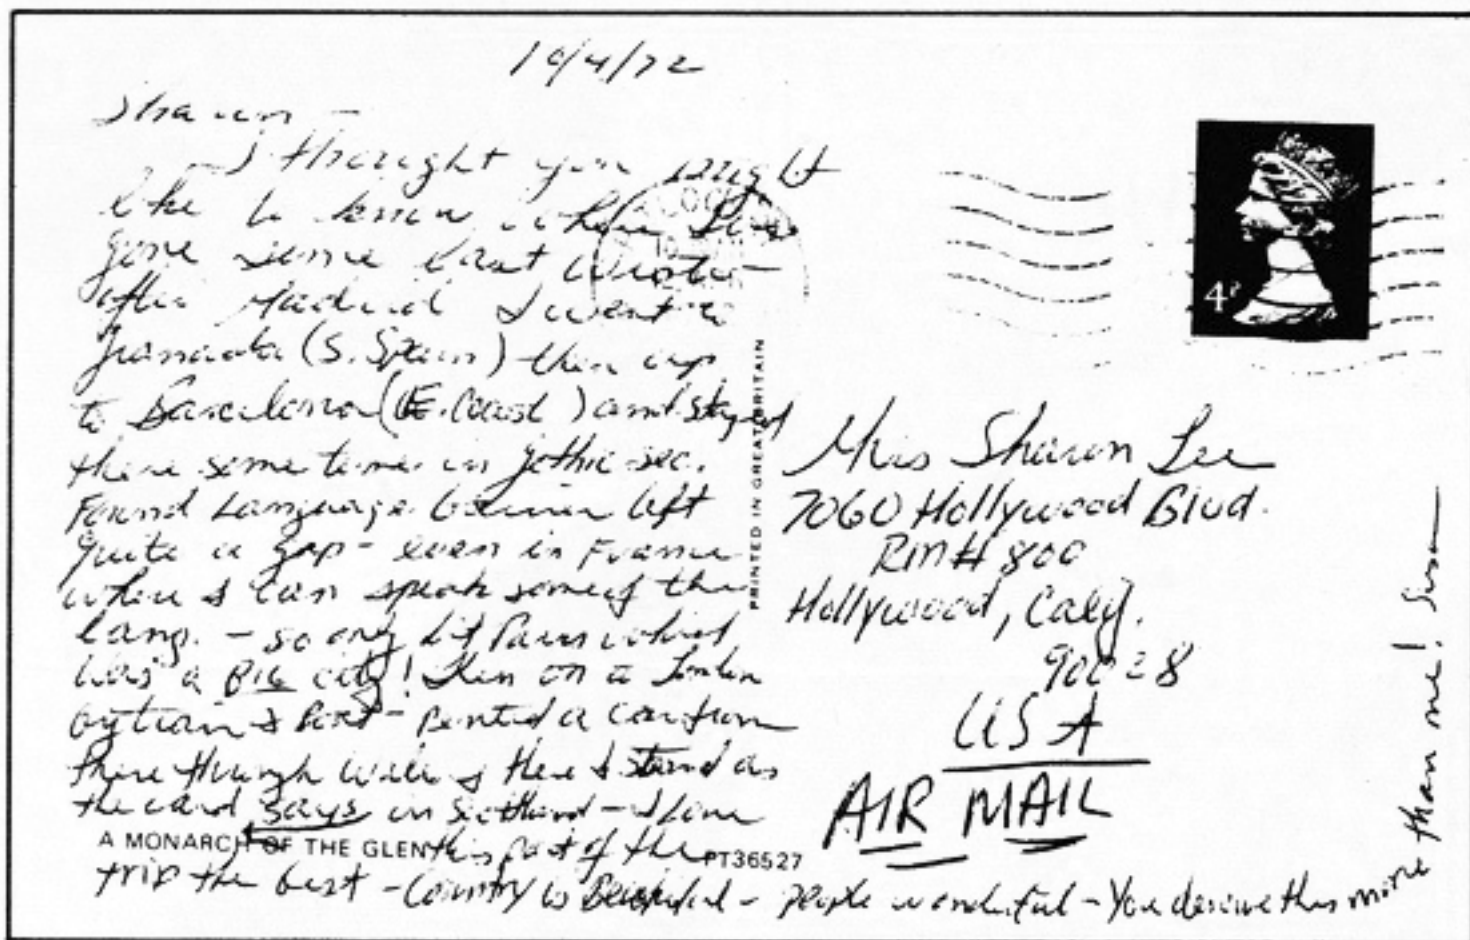 10/4/72
Sharon -
I thought you might
like to know where I've
gone since last wrote -
after Madrid I went to
Granada (S. Spain) then up
to Barcelona (E. Coast) and stayed
there some time in gothic sec.
Found Language barrier left
quite a gap - even in France
where I can speak some of the
lang. - so only hit Paris which
was a BIG city! Then on to London
by train & boat - rented a car from
there through Wales & there I stand as
the card says in Scotland - I love
A MONARCH OF THE GLEN this part of the PT36527
trip the best - Country is Beautiful - people wonderful - You deserve this more
than me! Susan
PRINTED IN GREAT BRITAIN
4P
Miss Sharon Lee
7060 Hollywood Blvd.
RM # 800
Hollywood, Calif.
90028
USA
AIR MAIL